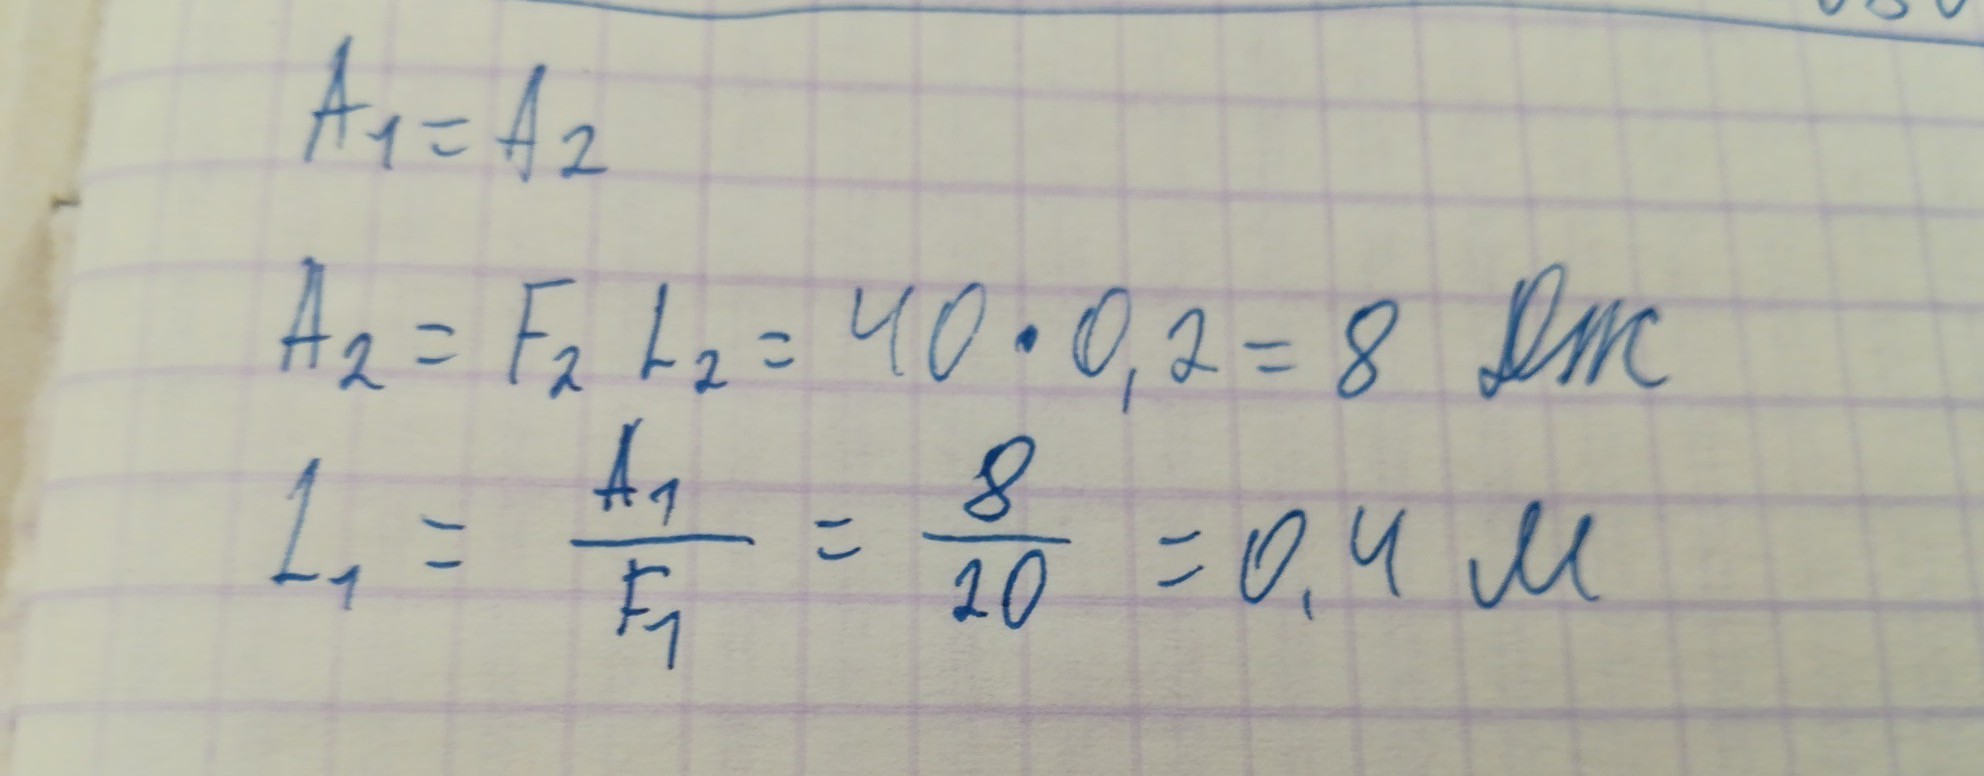 A₁ = A₂
A₂ = F₂ L₂ = 40 · 0,2 = 8 Дж
L₁ = A₁/F₁ = 8/20 = 0,4 м